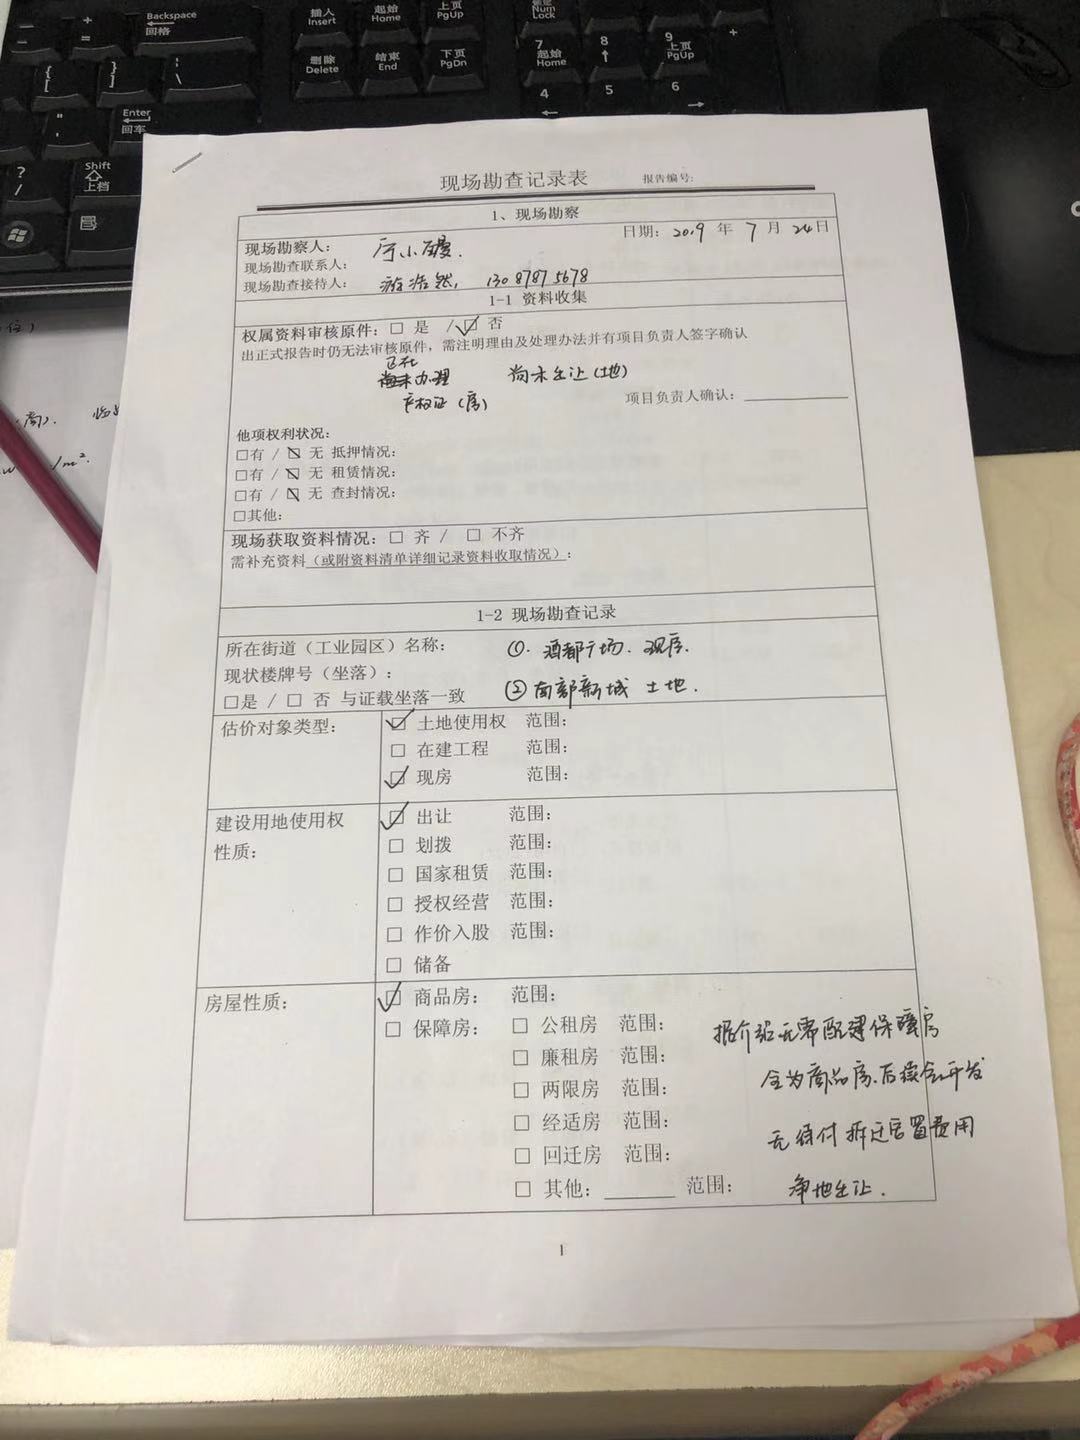 Backspace
回格
+
=
-
插入
Insert
起始
Home
上页
PgUp
Num
Lock
{
[
}
]
|
\
删除
Delete
结束
End
下页
PgDn
7
起始
Home
8
↑
9
上页
PgUp
+
"
'
Enter
回车
4
←
5
6
→
?
/
Shift
上档
现场勘查记录表 报告编号:
1、现场勘察
现场勘察人: 日期: 2019 年 7 月 24日
现场勘查联系人:
现场勘查接待人: 游浩然, 130 8787 5678
1-1 资料收集
权属资料审核原件: □ 是 / ☑ 否
出正式报告时仍无法审核原件, 需注明理由及处理办法并有项目负责人签字确认
正在
办理 尚未出让(地)
产权证(房) 项目负责人确认:
他项权利状况:
□有 / ☑ 无 抵押情况:
□有 / ☑ 无 租赁情况:
□有 / ☑ 无 查封情况:
□其他:
现场获取资料情况: □ 齐 / □ 不齐
需补充资料(或附资料清单详细记录资料收取情况):
1-2 现场勘查记录
所在街道(工业园区)名称: ①. 酒都广场. 现房.
现状楼牌号(坐落):
□是 / □ 否 与证载坐落一致 ②南部新城 土地.
估价对象类型: ☑ 土地使用权 范围:
□ 在建工程 范围:
☑ 现房 范围:
建设用地使用权 ☑ 出让 范围:
性质: □ 划拨 范围:
□ 国家租赁 范围:
□ 授权经营 范围:
□ 作价入股 范围:
□ 储备
房屋性质: ☑ 商品房: 范围:
□ 保障房: □ 公租房 范围: 据介绍无需配建保障房
□ 廉租房 范围:
全为商品房.后续会开发
□ 两限房 范围:
□ 经适房 范围: 无待付拆迁安置费用
□ 回迁房 范围:
□ 其他: 范围: 净地出让.
1